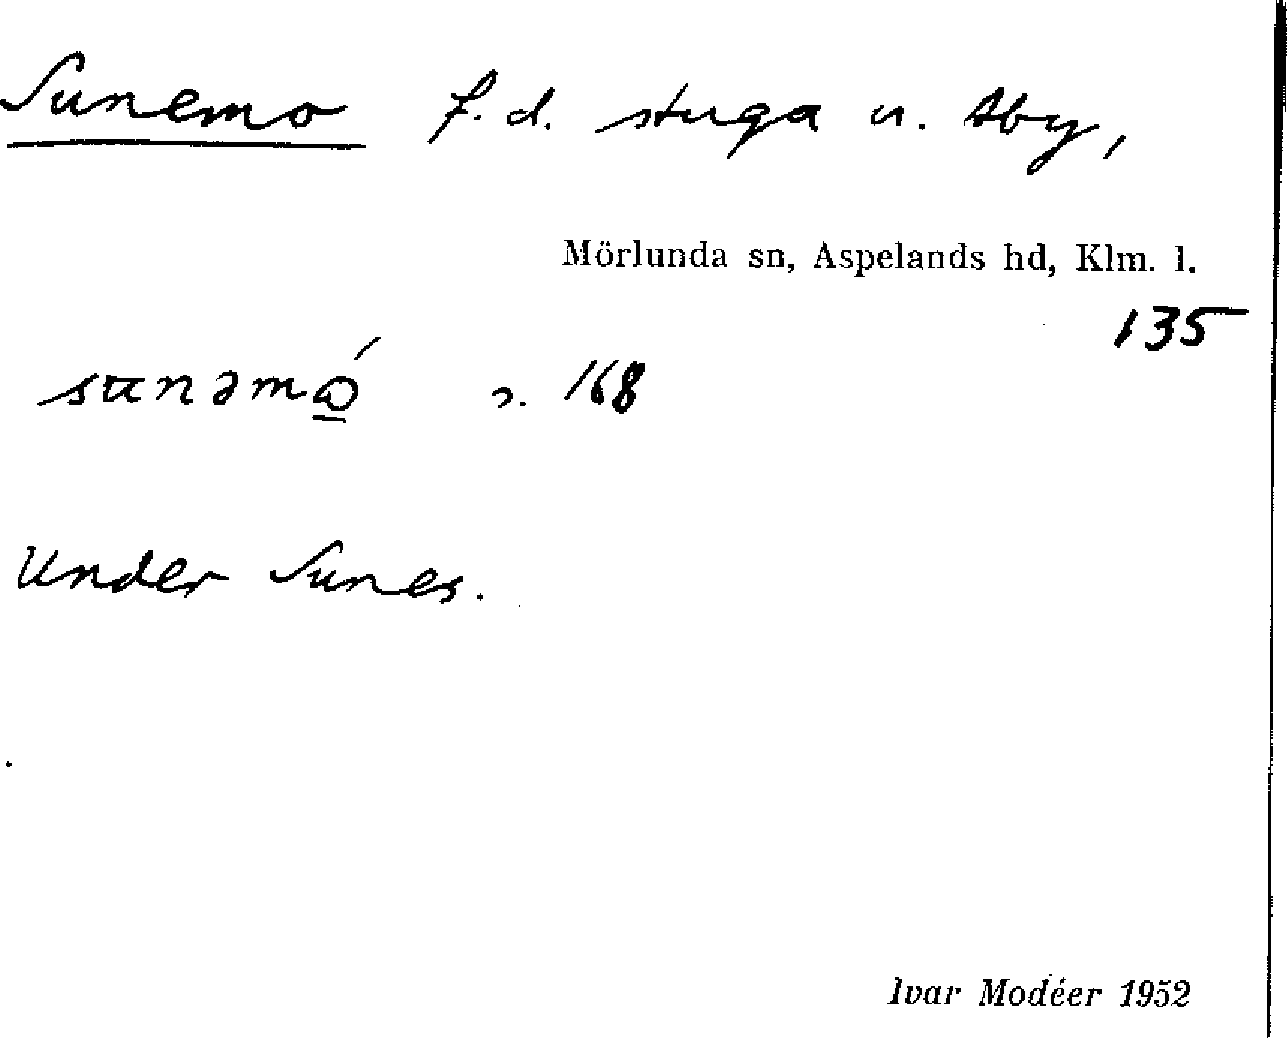 Sunemo f.d. stuga u. Åby,
Mörlunda sn, Aspelands hd, Klm. l.
135
s. 168
Under Sunes.
Ivar Modéer 1952